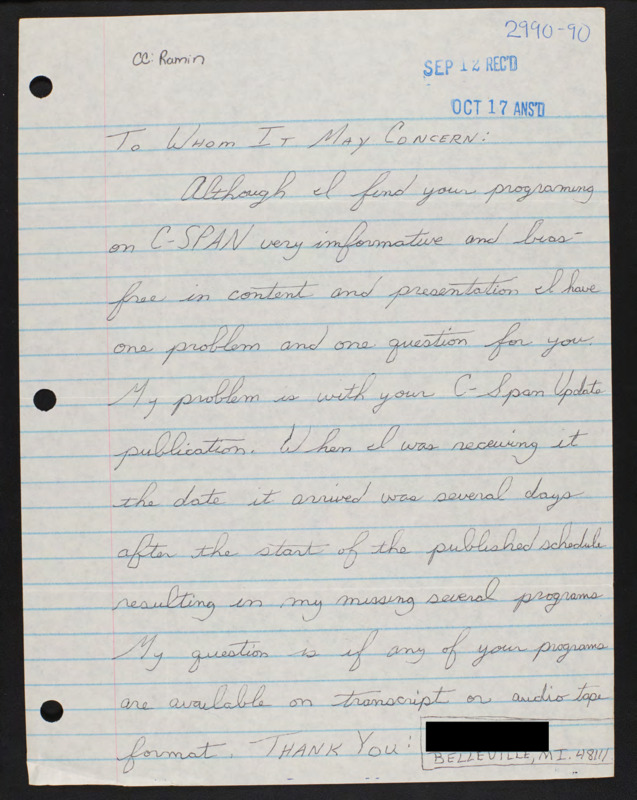 2990-90
CC: Ramin
SEP 12 REC'D
OCT 17 ANS'D
To Whom It May Concern:
Although I find your programing
on C-SPAN very imformative and bias-
free in content and presentation I have
one problem and one question for you.
My problem is with your C-Span Update
publication. When I was receiving it
the date it arrived was several days
after the start of the published schedule
resulting in my missing several programs
My question is if any of your programs
are available on transcript or audio tape
format. THANK YOU:
BELLEVILLE, MI. 48111